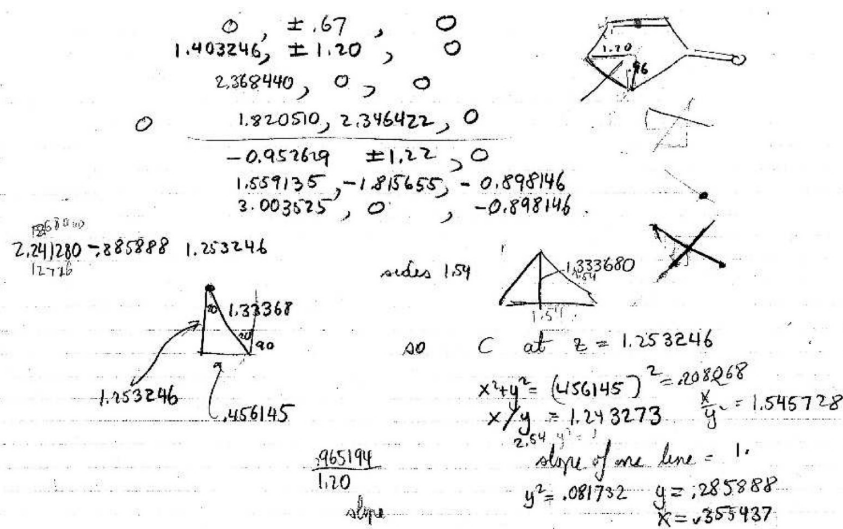 0, ±.67, 0
1.403246, ±1.20, 0
2.368440, 0, 0
0 1.820510, 2.346422, 0
-0.952629 ±1.22, 0
1.559135, -1.815655, -0.898146
3.003525, 0, -0.898146
1.20
.96
2.241280 -.885888 1.253246
sides 1.54
1.333680
1.54
1.54
1.33368
20
20
90
1.253246
.456145
so C at z = 1.253246
x²+y² = (.456145)² = .208068
x/y = 1.243273
x/y = 1.545728
2.54 y² =
slope of one line = 1.
.965194
1.20
slope
y² = .081732 y = .285888
x = .355437